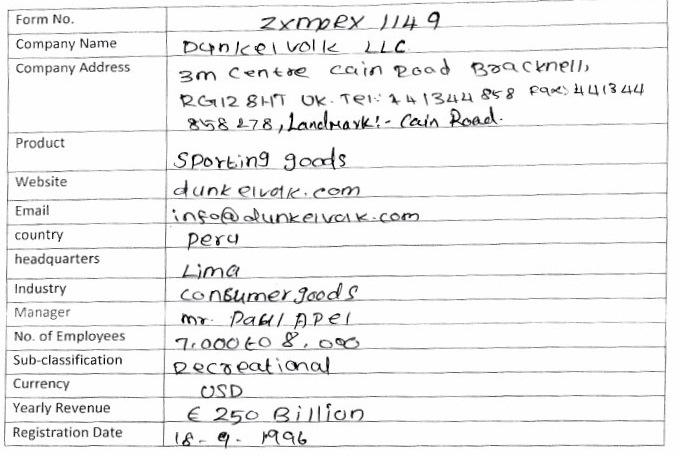 Form No. zxmpex 1149
Company Name Dunkelvolk LLC
Company Address 3m Centre Cain Road Bracknell,
RG12 8HT UK. Tel: +4 1344 858 Fax: 441344
858 278, Landmark:- Cain Road.
Product Sporting goods
Website dunkelvolk.com
Email info@dunkelvolk.com
country Peru
headquarters Lima
Industry consumer goods
Manager mr. Paul Apel
No. of Employees 7,000 to 8,000
Sub-classification Recreational
Currency USD
Yearly Revenue € 250 Billion
Registration Date 18-9-1996